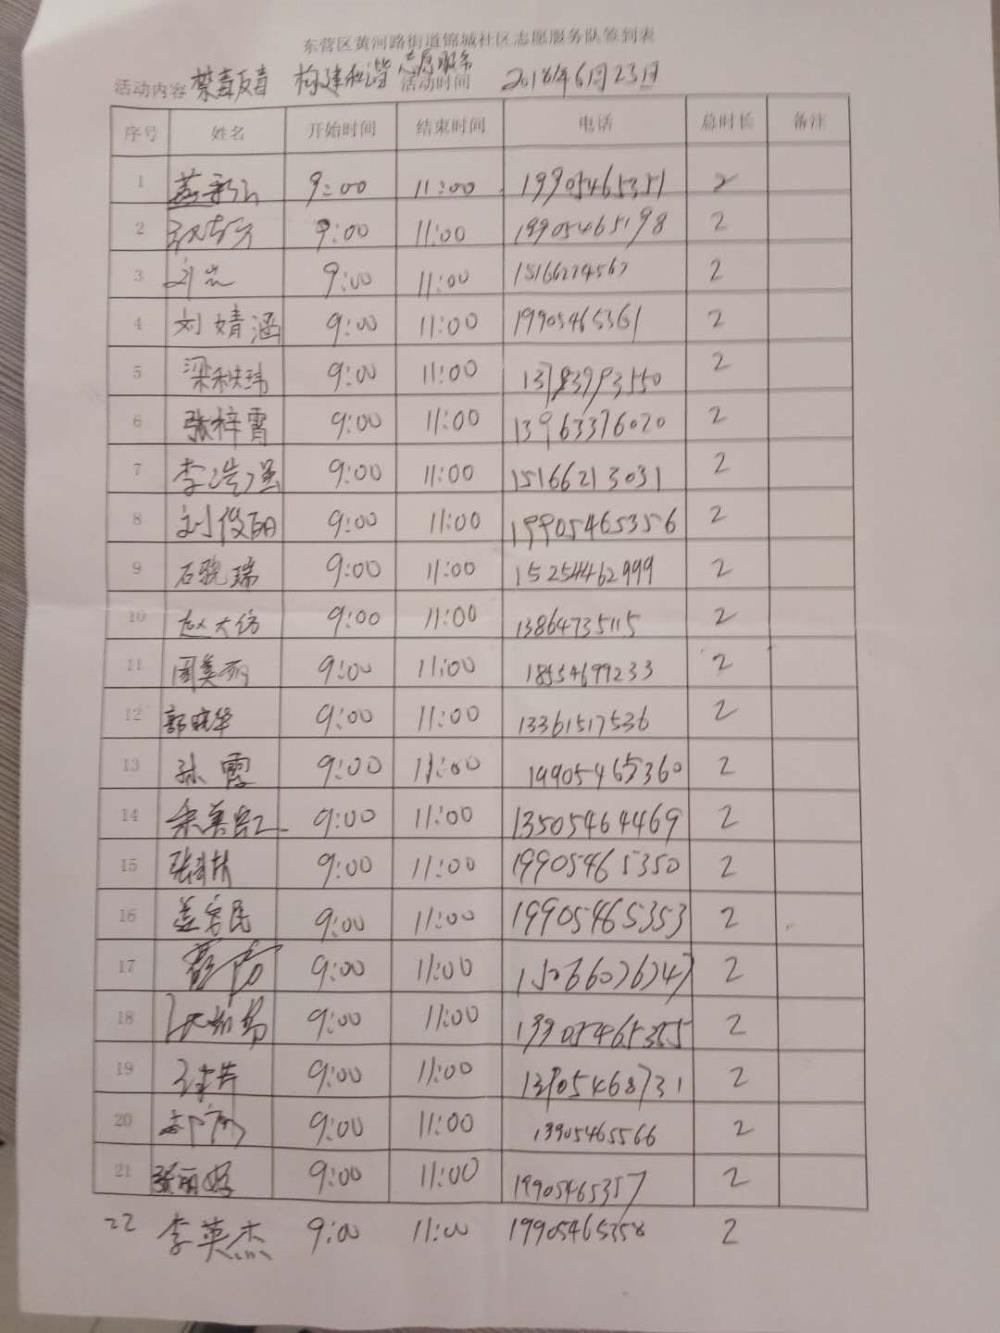 东营区黄河路街道锦城社区志愿服务队签到表
活动内容 禁毒反毒 构建和谐 志愿服务 活动时间 2018年6月23日
序号 姓名 开始时间 结束时间 电话 总时长 备注
1 9:00 11:00 19905465351 2
2 9:00 11:00 19905465198 2
3 9:00 11:00 2
4 刘婧涵 9:00 11:00 19905465361 2
5 梁秩玮 9:00 11:00 2
6 张梓霄 9:00 11:00 13963376020 2
7 李浩强 9:00 11:00 15166213031 2
8 刘俊丽 9:00 11:00 19905465356 2
9 石骁瑞 9:00 11:00 15254462999 2
10 9:00 11:00 13864735115 2
11 周美丽 9:00 11:00 18554699233 2
12 郭晓华 9:00 11:00 13361517536 2
13 孙霞 9:00 11:00 19905465360 2
14 9:00 11:00 13505464469 2
15 9:00 11:00 19905465350 2
16 9:00 11:00 19905465353 2
17 9:00 11:00 15066076747 2
18 9:00 11:00 19905465355 2
19 9:00 11:00 13905468731 2
20 9:00 11:00 13905465566 2
21 张丽婷 9:00 11:00 19905465357 2
22 李英杰 9:00 11:00 19905465358 2